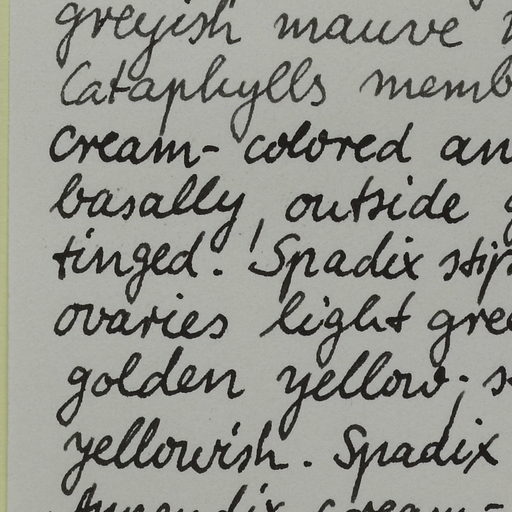 greyish mauve
Cataphylls memb
cream-colored an
basally, outside g
tinged. Spadix stip
ovaries light gree
golden yellow; s
yellowish. Spadix
Appendix cream-